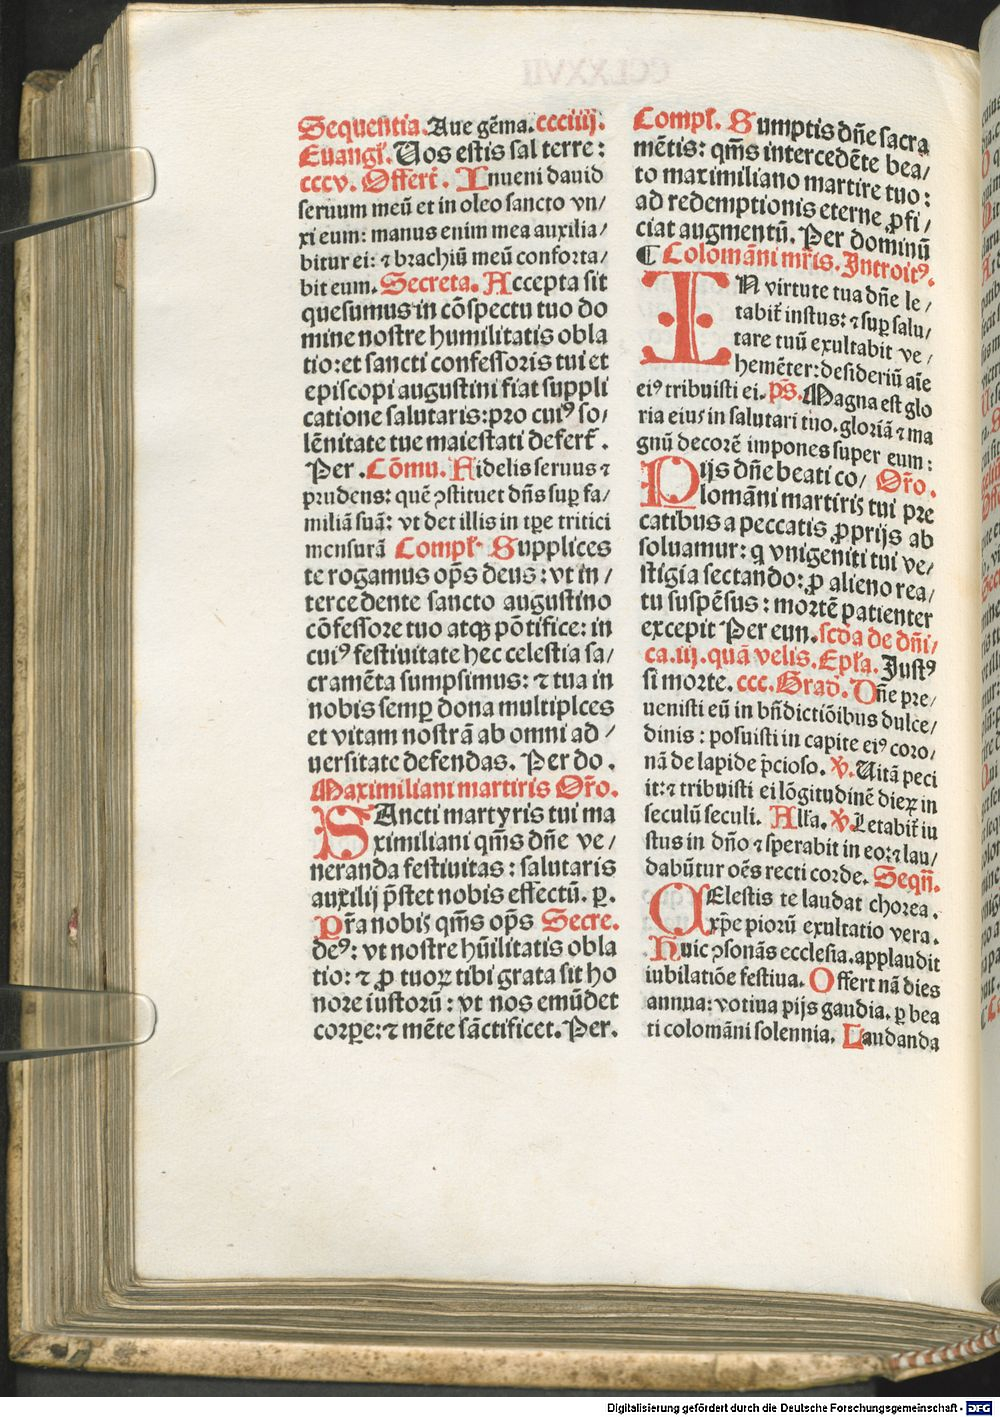 Sequentia. Aue gēma. ccciiij.
Euangl̄. Uos estis sal terre:
cccv. Offert̄. Inueni dauid
seruum meū et in oleo sancto vn/
xi eum: manus enim mea auxilia/
bitur ei: ⁊ brachiū meū conforta/
bit eum. Secreta. Accepta sit
quesumus in cōspectu tuo do
mine nostre humilitatis obla
tio: et sancti confessoris tui et
episcopi augustini fiat suppli
catione salutaris: pro cuiꝰ so/
lēnitate tue maiestati defert̄.
Per. Cōmu. Fidelis seruus ⁊
prudens: quē ꝯstituet dn̄s suꝑ fa/
miliā suā: vt det illis in tꝑe tritici
mensurā Compl̄. Supplices
te rogamus op̄s deus: vt in/
tercedente sancto augustino
cōfessore tuo atqꝫ pōtifice: in
cuiꝰ festiuitate hec celestia sa/
cramēta sumpsimus: ⁊ tua in
nobis semꝑ dona multiplces
et vitam nostrā ab omni ad/
uersitate defendas. Per do.
Maximiliani martiris Or̄o.
SAncti martyris tui ma
ximiliani qm̄s dn̄e ve/
neranda festiuitas: salutaris
auxilij p̄stet nobis effectū. ꝑ.
Pr̄a nobis qm̄s op̄s Secre.
deꝰ: vt nostre hūilitatis obla
tio: ⁊ ꝓ tuoꝝ tibi grata sit ho
nore iustorū: vt nos emūdet
corꝑe: ⁊ mēte sāctificet. Per.
Compl̄. Sumptis dn̄e sacra
mētis: qm̄s intercedēte bea/
to maximiliano martire tuo:
ad redemptionis eterne ꝓfi/
ciat augmentū. Per dominū
¶ Colomāni mr̄is. Introitꝰ.
IN virtute tua dn̄e le/
tabit̄ iustus: ⁊ suꝑ salu/
tare tuū exultabit ve/
hemēter: desideriū aīe
eiꝰ tribuisti ei. ps̄. Magna est glo
ria eius in salutari tuo. gloriā ⁊ ma
gnū decorē impones super eum:
PIjs dn̄e beati co/ Or̄o.
lomāni martiris tui pre
catibus a peccatis ꝓprijs ab
soluamur: q vnigeniti tui ve/
stigia sectando: ꝓ alieno rea/
tu suspēsus: mortē patienter
excepit Per eun. scd̄a de dn̄i/
ca. iij. quā velis. Epl̄a. Justꝰ
si morte. ccc. Grad̄. Dn̄e pre/
uenisti eū in bn̄dictiōibus dulce/
dinis: posuisti in capite eiꝰ coro/
nā de lapide p̄cioso. ℣. Uitā peci
it: ⁊ tribuisti ei lōgitudinē dieꝝ in
seculū seculi. All̄a. ℣. Letabit̄ iu
stus in dn̄o ⁊ sperabit in eo: ⁊ lau/
dabūtur oēs recti corde. Seqn̄.
CElestis te laudat chorea.
xp̄e piorū exultatio vera.
Huic ꝯsonās ecclesia. applaudit
iubilatiōe festiua. Offert nā dies
annua: votiua pijs gaudia. ꝑ bea
ti colomāni solennia. Laudanda
Digitalisierung gefördert durch die Deutsche Forschungsgemeinschaft - DFG